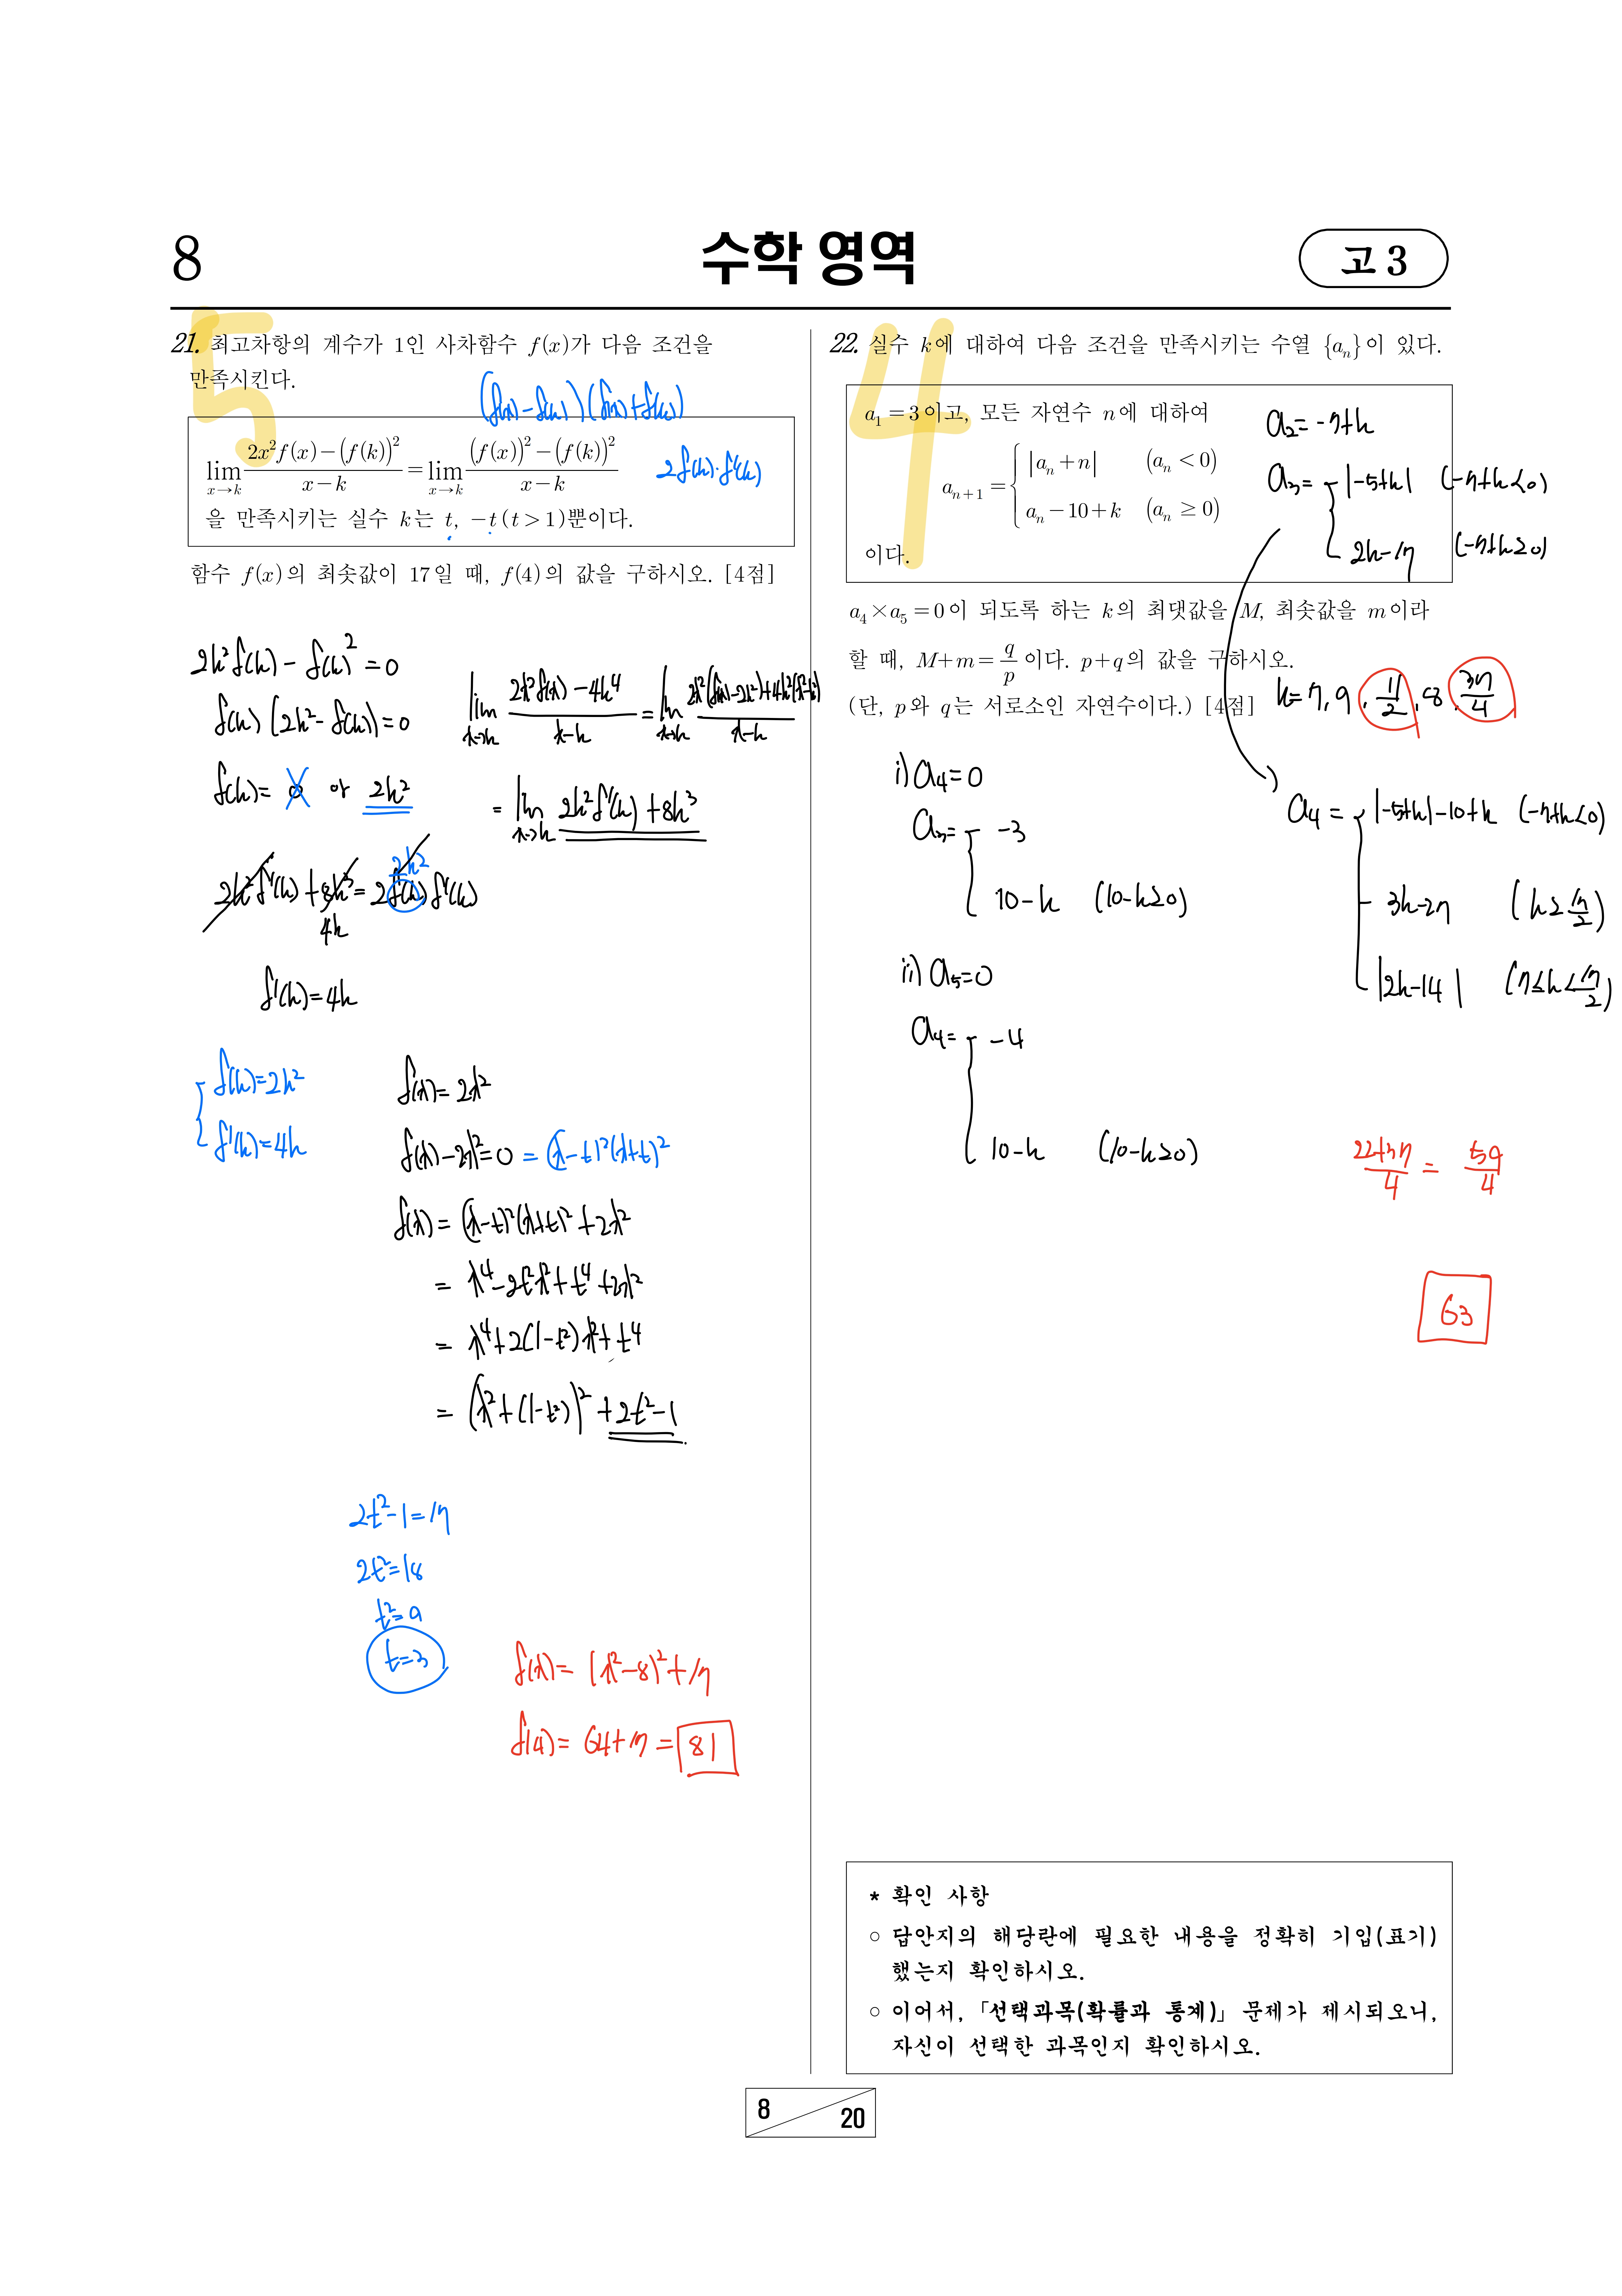 8
수학 영역
고 3
5
21. 최고차항의 계수가 1인 사차함수 f(x)가 다음 조건을
만족시킨다.
(f(x)-f(k))(f(x)+f(k))
lim_{x→k} (2x²f(x)-(f(k))²)/(x-k) = lim_{x→k} ((f(x))²-(f(k))²)/(x-k)
2f(k)·f'(k)
을 만족시키는 실수 k는 t, -t(t>1)뿐이다.
함수 f(x)의 최솟값이 17일 때, f(4)의 값을 구하시오. [4점]
2k²f(k) - f(k)² = 0
f(k)(2k²-f(k))=0
f(k)= 0 or 2k²
lim_{x→k} (2x²f(x)-4k⁴)/(x-k) = lim_{x→k} (2x²(f(x)-2k²)+4k²(x²-k²))/(x-k)
= lim_{x→k} 2k²f'(k)+8k³
2k²
2k²f'(k)+8k³=2f(k)f'(k)
4k
f'(k)=4k
f(k)=2k²
f'(k)=4k
f(x)=2x²
f(x)-2x²=0 = (x-t)²(x+t)²
f(x) = (x-t)²(x+t)²+2x²
= x⁴-2t²x²+t⁴+2x²
= x⁴+2(1-t²)x²+t⁴
= (x²+(1-t²))²+2t²-1
2t²-1=17
2t²=18
t²=9
t=3
f(x)= (x²-8)²+17
f(4)= 64+17 = 81
4
22. 실수 k에 대하여 다음 조건을 만족시키는 수열 {a_n}이 있다.
a₁=3이고, 모든 자연수 n에 대하여
a_{n+1} = { |a_n+n| (a_n<0)
a_n-10+k (a_n≥0)
이다.
a₂=-7+k
a₃= |-5+k| (-7+k<0)
2k-17 (-7+k≥0)
a₄×a₅=0이 되도록 하는 k의 최댓값을 M, 최솟값을 m이라
할 때, M+m=q/p이다. p+q의 값을 구하시오.
(단, p와 q는 서로소인 자연수이다.) [4점]
k=7, 9, 11/2, 8, 37/4
i) a₄=0
a₃= -3
10-k (10-k≥0)
ii) a₅=0
a₄= -4
10-k (10-k≥0)
a₄ = |-5+k|-10+k (-7+k<0)
3k-27 (k≥17/2)
|2k-14| (7≤k<17/2)
(22+37)/4 = 59/4
63
* 확인 사항
○ 답안지의 해당란에 필요한 내용을 정확히 기입(표기)
했는지 확인하시오.
○ 이어서, 「선택과목(확률과 통계)」 문제가 제시되오니,
자신이 선택한 과목인지 확인하시오.
8
20